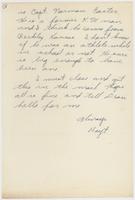 is Capt. Norman Carter
He is a former K.U. man
and I think he came from
Berkley Kansas I don't know
if he was an athlete while
in school or not. He sure
is big enough to have
been one.
I must close and get
this in the mail. Hope
all is fine and tell Dean
hello for me
Always
Hoyt